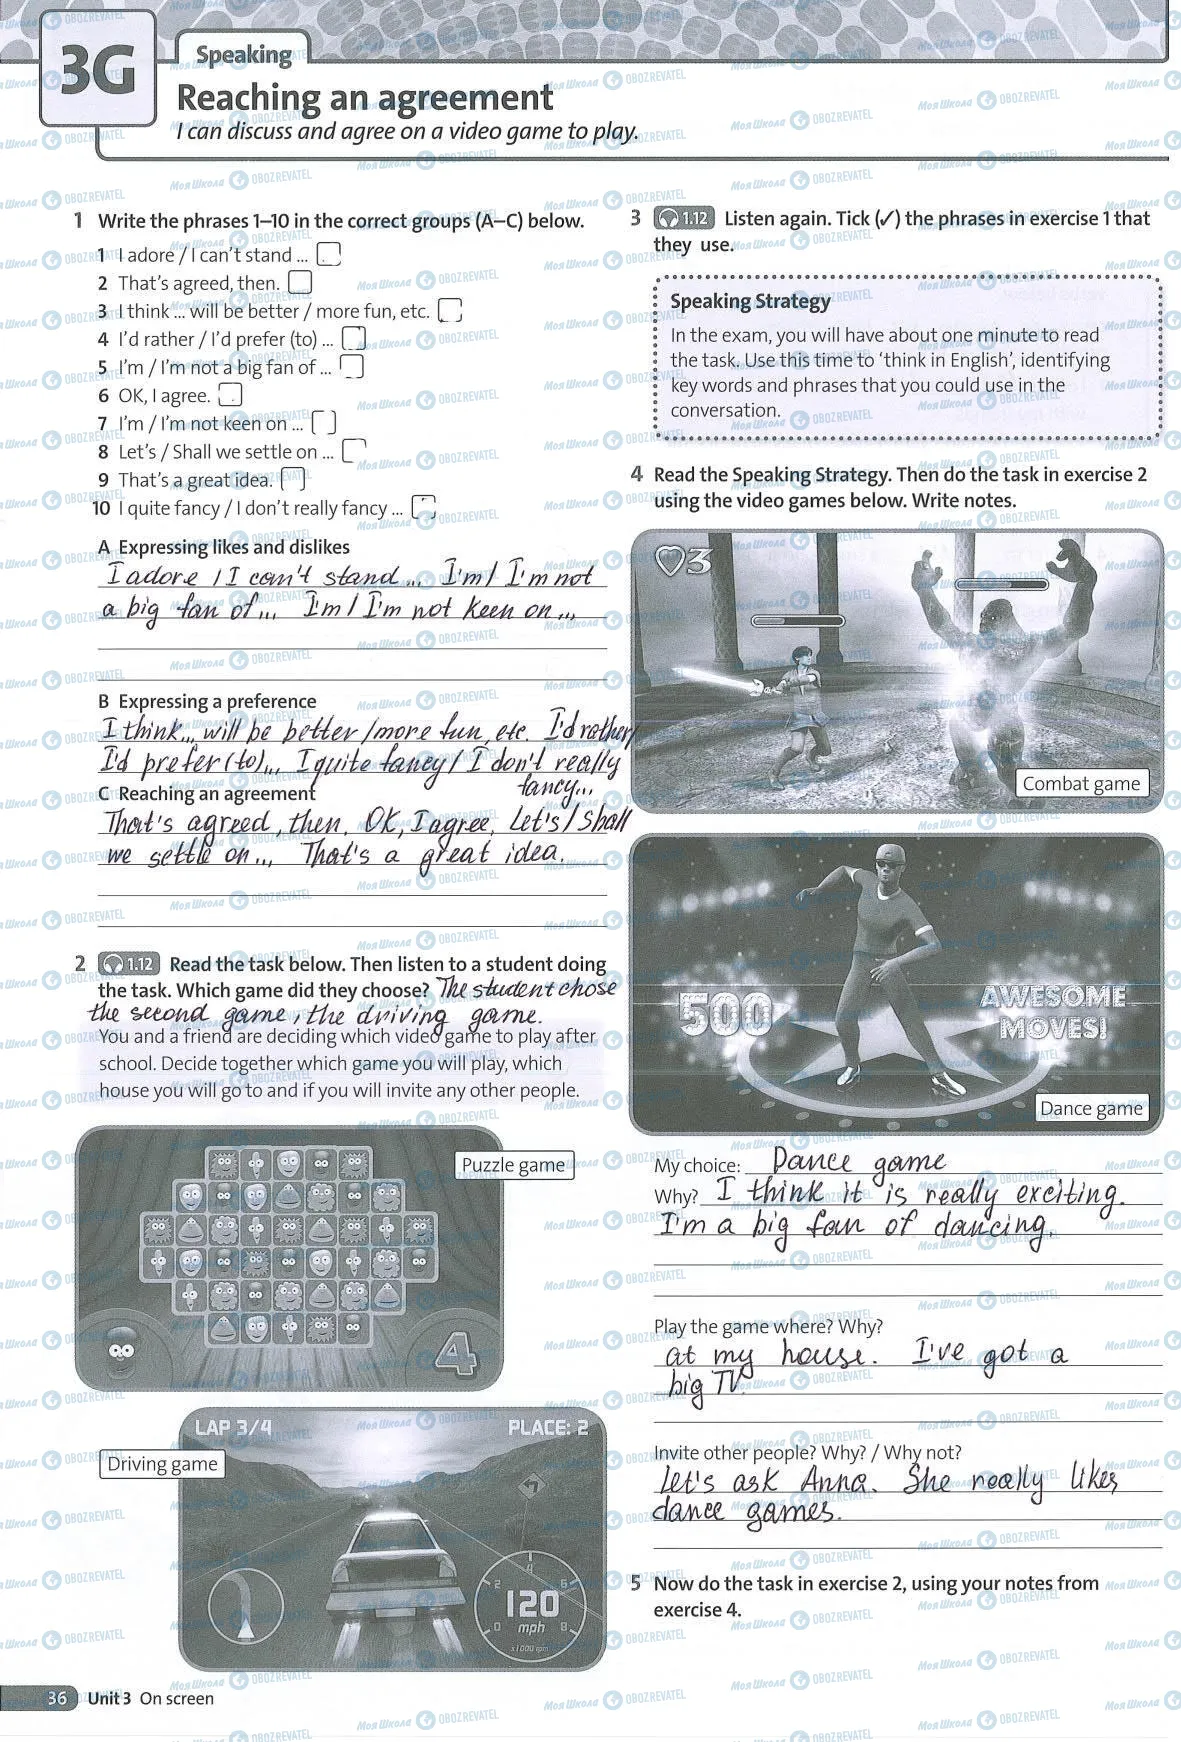 3G
Speaking
Reaching an agreement
I can discuss and agree on a video game to play.
1 Write the phrases 1–10 in the correct groups (A–C) below.
1 I adore / I can't stand ...
2 That's agreed, then.
3 I think ... will be better / more fun, etc.
4 I'd rather / I'd prefer (to) ...
5 I'm / I'm not a big fan of ...
6 OK, I agree.
7 I'm / I'm not keen on ...
8 Let's / Shall we settle on ...
9 That's a great idea.
10 I quite fancy / I don't really fancy ...
A Expressing likes and dislikes
I adore / I can't stand ... I'm / I'm not
a big fan of ... I'm / I'm not keen on ...
B Expressing a preference
I think... will be better /more fun, etc. I'd rather/
I'd prefer (to)... I quite fancy / I don't really
fancy...
C Reaching an agreement
That's agreed, then. OK, I agree. Let's / Shall
we settle on ... That's a great idea.
2 1.12 Read the task below. Then listen to a student doing
the task. Which game did they choose? The student chose
the second game, the driving game.
You and a friend are deciding which video game to play after
school. Decide together which game you will play, which
house you will go to and if you will invite any other people.
Puzzle game
4
LAP 3/4 PLACE: 2
Driving game
120
mph
x1000 rpm
3 1.12 Listen again. Tick (✓) the phrases in exercise 1 that
they use.
Speaking Strategy
In the exam, you will have about one minute to read
the task. Use this time to 'think in English', identifying
key words and phrases that you could use in the
conversation.
4 Read the Speaking Strategy. Then do the task in exercise 2
using the video games below. Write notes.
3
Combat game
500 AWESOME
MOVES!
Dance game
My choice: Dance game
Why? I think it is really exciting.
I'm a big fan of dancing.
Play the game where? Why?
at my house. I've got a
big TV.
Invite other people? Why? / Why not?
Let's ask Anna. She really likes
dance games.
5 Now do the task in exercise 2, using your notes from
exercise 4.
36 Unit 3 On screen
Моя Школа OBOZREVATEL